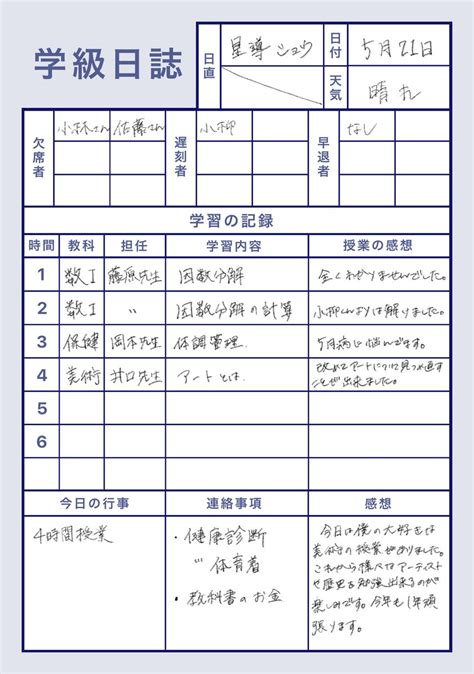 学級日誌
日直 星導ショウ 日付 5月21日
天気 晴れ
欠席者 小林さん 佐藤さん 遅刻者 小柳 早退者 なし
学習の記録
時間 教科 担任 学習内容 授業の感想
1 数I 藤原先生 因数分解 全くわかりませんでした。
2 数I 〃 因数分解の計算 小柳くんよりは解りました。
3 保健 岡本先生 体調管理 5月病に悩んでます。
4 美術 井口先生 アートとは 改めてアートについて見つめ直す
ことが出来ました。
5
6
今日の行事 連絡事項 感想
4時間授業
・健康診断
〃体育着
・教科書のお金
今日は僕の大好きな
美術の授業がありました。
これから様々なアーティスト
や歴史を勉強出来るのが
楽しみです。今年も1年頑
張ります。